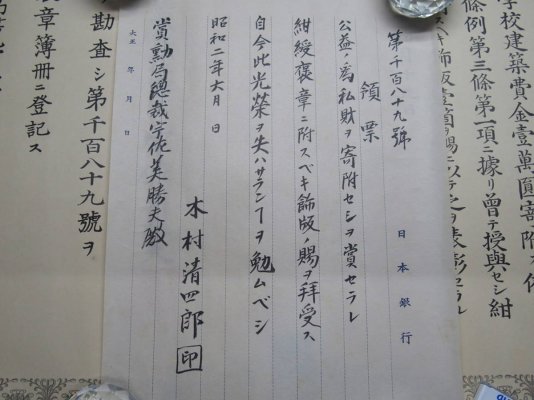 学校建築費金壹萬圓寄附
條例第三條第一項ニ據リ曾テ授與セシ紺
飾版壹箇ヲ賜ヒ以テ之ヲ表彰セラル
日本銀行
第千百八十九號
領票
公益ノ為私財ヲ寄附セシヲ賞セラレ
紺綬褒章ニ附スベキ飾版ノ賜ヲ拝受ス
自今此光榮ヲ失ハサランヿヲ勉ムベシ
昭和二年六月 日
木村清四郎 印
賞勲局總裁宇佐美勝夫殿
大正 年 月 日
勘査シ第千百八十九號ヲ
章簿冊ニ登記ス